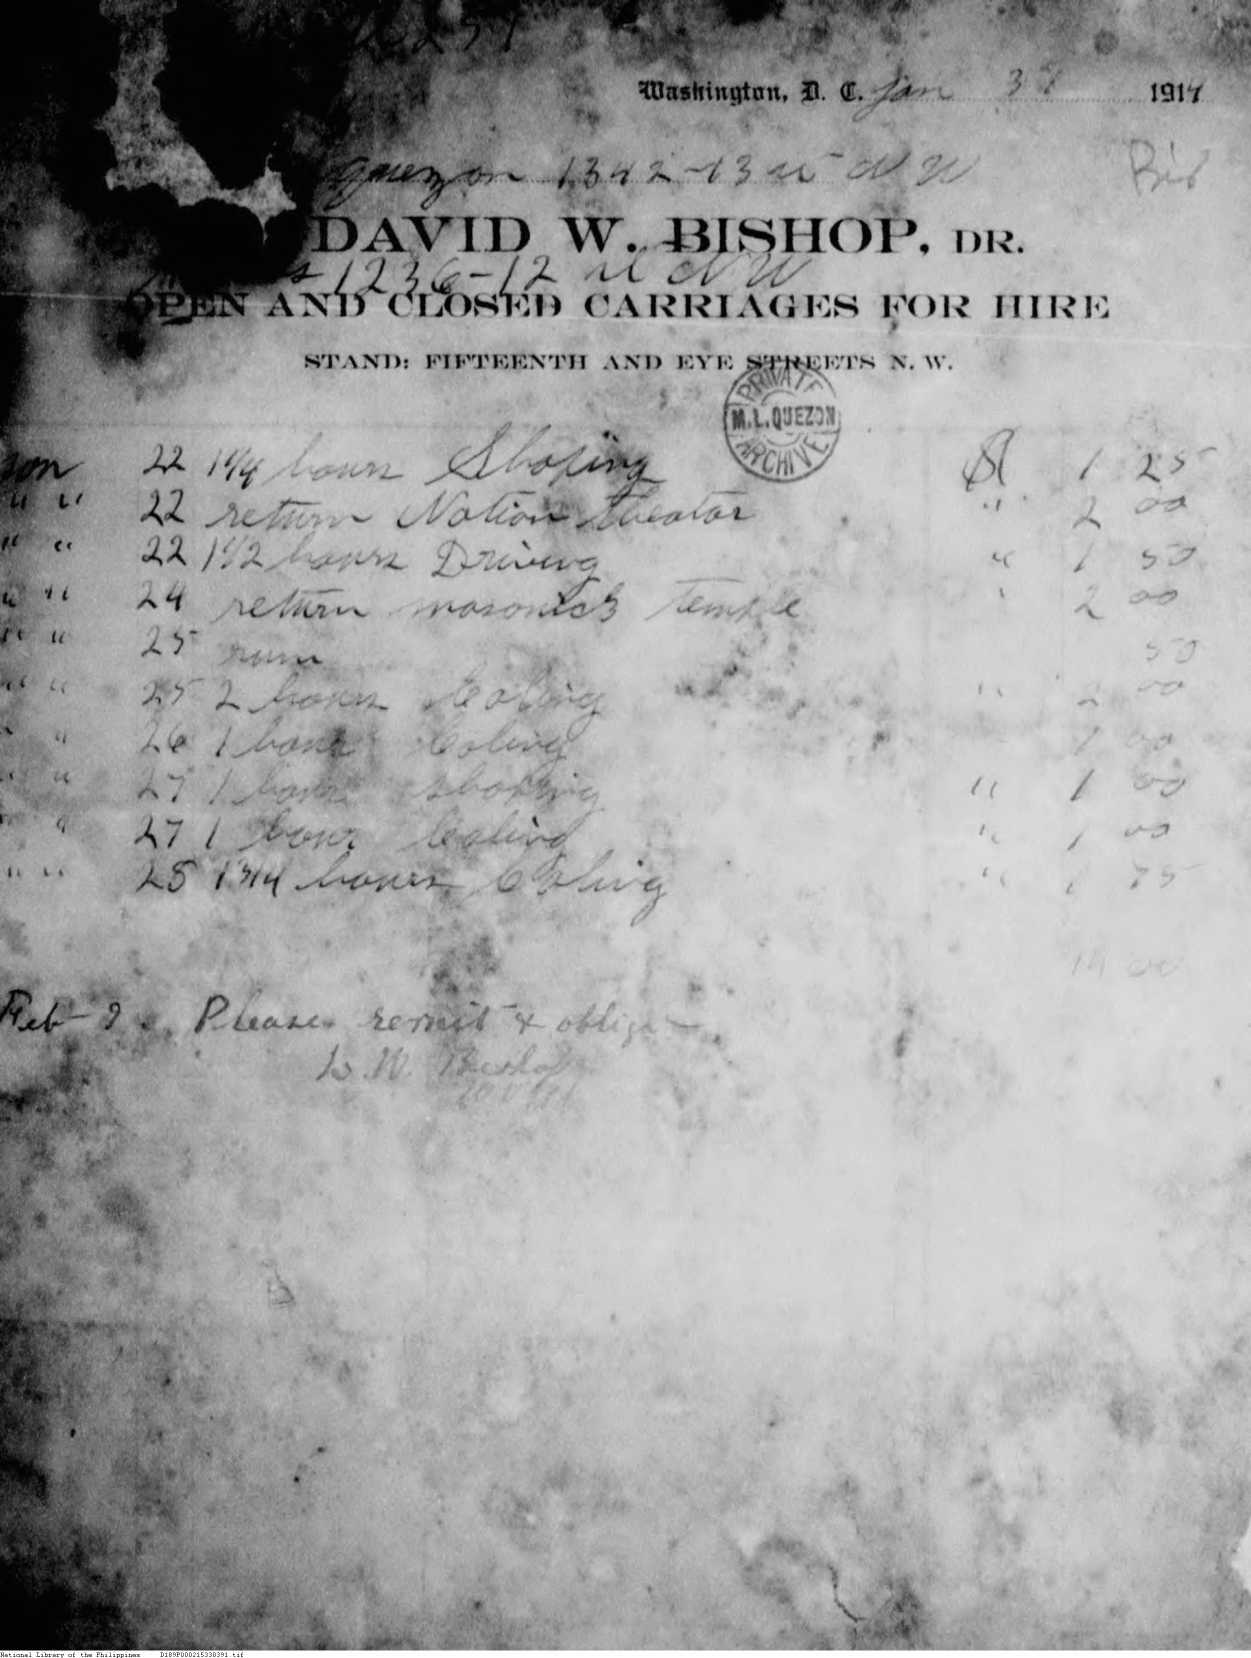 Washington, D. C. Jan 31 1914
quezon 1342-13 st N W
DAVID W. BISHOP, DR.
1236-12 st N W
OPEN AND CLOSED CARRIAGES FOR HIRE
STAND: FIFTEENTH AND EYE STREETS N. W.
PRIVATE
M.L.QUEZON
ARCHIVE
22 1 1/4 hours Shoping $ 1 25
" " 22 return Nation theatar " 2 00
" " 22 1 1/2 hours Driving " 1 50
" " 24 return masonick temple " 2 00
" " 25 run 50
" " 25 2 hours Coling " 2 00
" " 26 1 hour Coling 1 00
" " 27 1 hour shoping " 1 00
" " 27 1 hour Coling " 1 00
" " 28 1 3/4 hours Coling " 1 75
14 00
Feb 9. Please remit & oblige
D. W. Bishop
National Library of the Philippines D189P000215330391.tif